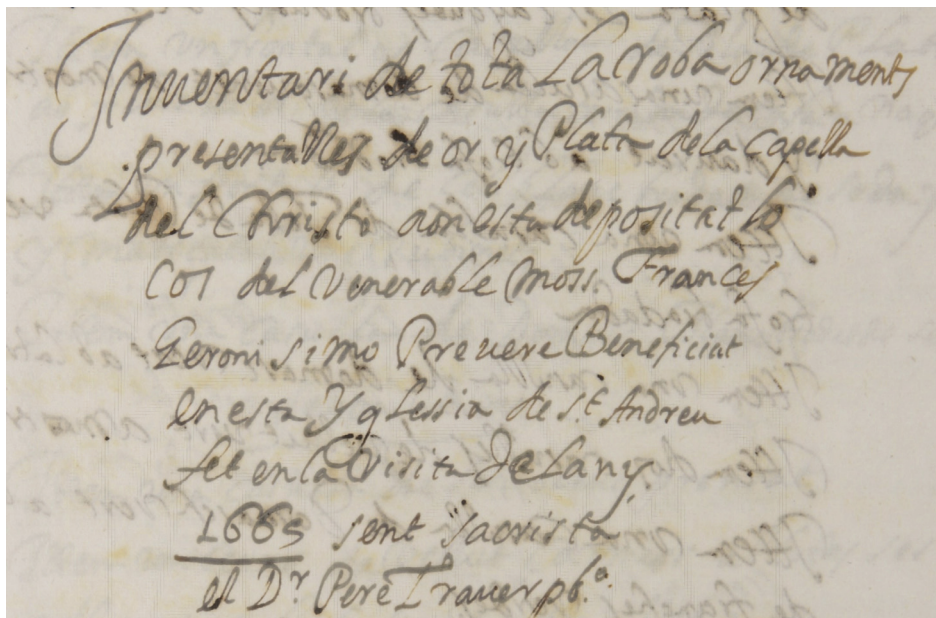 Inuentari de tota La roba ornaments
presentalles de or y Plata de la Capella
del Christo aon esta depositat lo
cos del Venerable Moss. Frances
Geronisimo Preuere Beneficiat
en esta Yglessia de s.t Andreu
fet en la Visita de Lany
1665 sent sacrista
el D.r Pere Trauer pb.e